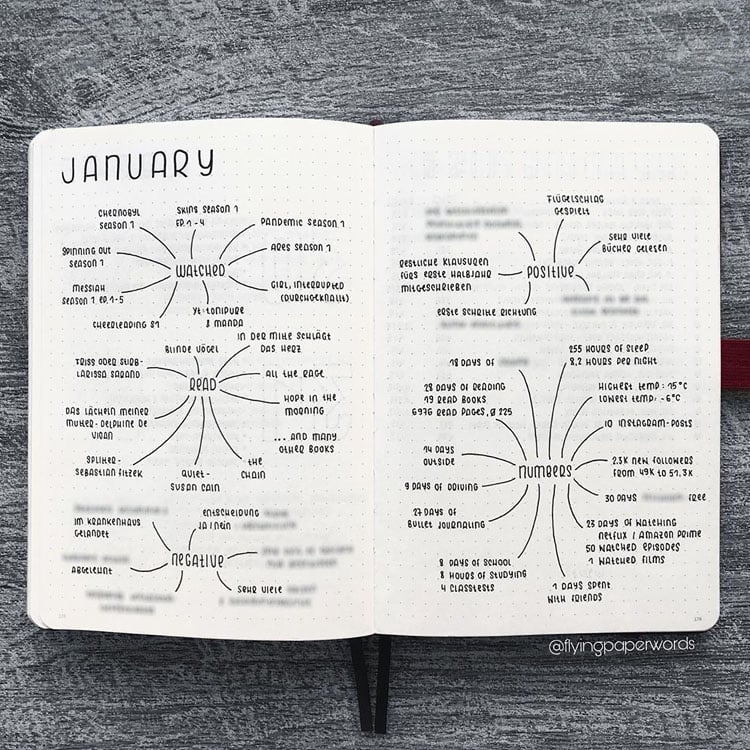 JANUARY
CHERNOBYL
SEASON 1
SKINS SEASON 1
EP. 1-4
PANDEMIC SEASON 1
ARES SEASON 1
SPINNING OUT
SEASON 1
WATCHED
MESSIAH
SEASON 1 EP. 1-5
GIRL, INTERRUPTED
(DURCHGEKNALLT)
CHEERLEADING S1
YT: TONIPURE
& MANDA
BLINDE VÖGEL
IN DER MITTE SCHLÄGT
DAS HERZ
FRISS ODER STIRB-
LARISSA SARAND
READ
ALL THE RAGE
HOPE IN THE
MORNING
DAS LÄCHELN MEINER
MUTTER-DELPHINE DE
VIGAN
... AND MANY
OTHER BOOKS
SPLITTER-
SEBASTIAN FITZEK
QUIET-
SUSAN CAIN
THE
CHAIN
IM KRANKENHAUS
GELANDET
ENTSCHEIDUNG
JA/NEIN
NEGATIVE
ABGELEHNT
SEHR VIELE
FLÜGELSCHLAG
GESPIELT
SEHR VIELE
BÜCHER GELESEN
RESTLICHE KLAUSUREN
FÜRS ERSTE HALBJAHR
MITGESCHRIEBEN
POSITIVE
ERSTE SCHRITTE RICHTUNG
18 DAYS OF
255 HOURS OF SLEEP
8,2 HOURS PER NIGHT
28 DAYS OF READING
19 READ BOOKS
6976 READ PAGES, Ø 225
HIGHEST TEMP: 15°C
LOWEST TEMP: -6°C
10 INSTAGRAM-POSTS
14 DAYS
OUTSIDE
NUMBERS
2.3K NEW FOLLOWERS
FROM 49K TO 51.3K
9 DAYS OF DRIVING
30 DAYS
FREE
27 DAYS OF
BULLET JOURNALING
23 DAYS OF WATCHING
NETFLIX / AMAZON PRIME
50 WATCHED EPISODES
1 WATCHED FILMS
8 DAYS OF SCHOOL
8 HOURS OF STUDYING
4 CLASSTESTS
7 DAYS SPENT
WITH FRIENDS
@flyingpaperwords